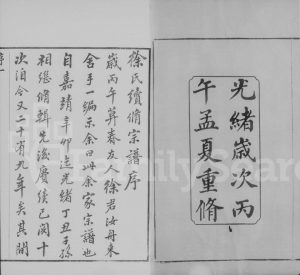 光緒歲次丙
午孟夏重脩
徐氏續脩宗譜序
歲丙午莫春友人徐君汝舟來
舍手一編示余曰此余家宗譜也
自嘉靖辛卯迄光緒丁丑子孫
相繼脩輯先後賡續已閱十
次洎今又二十有九年矣其間
序一